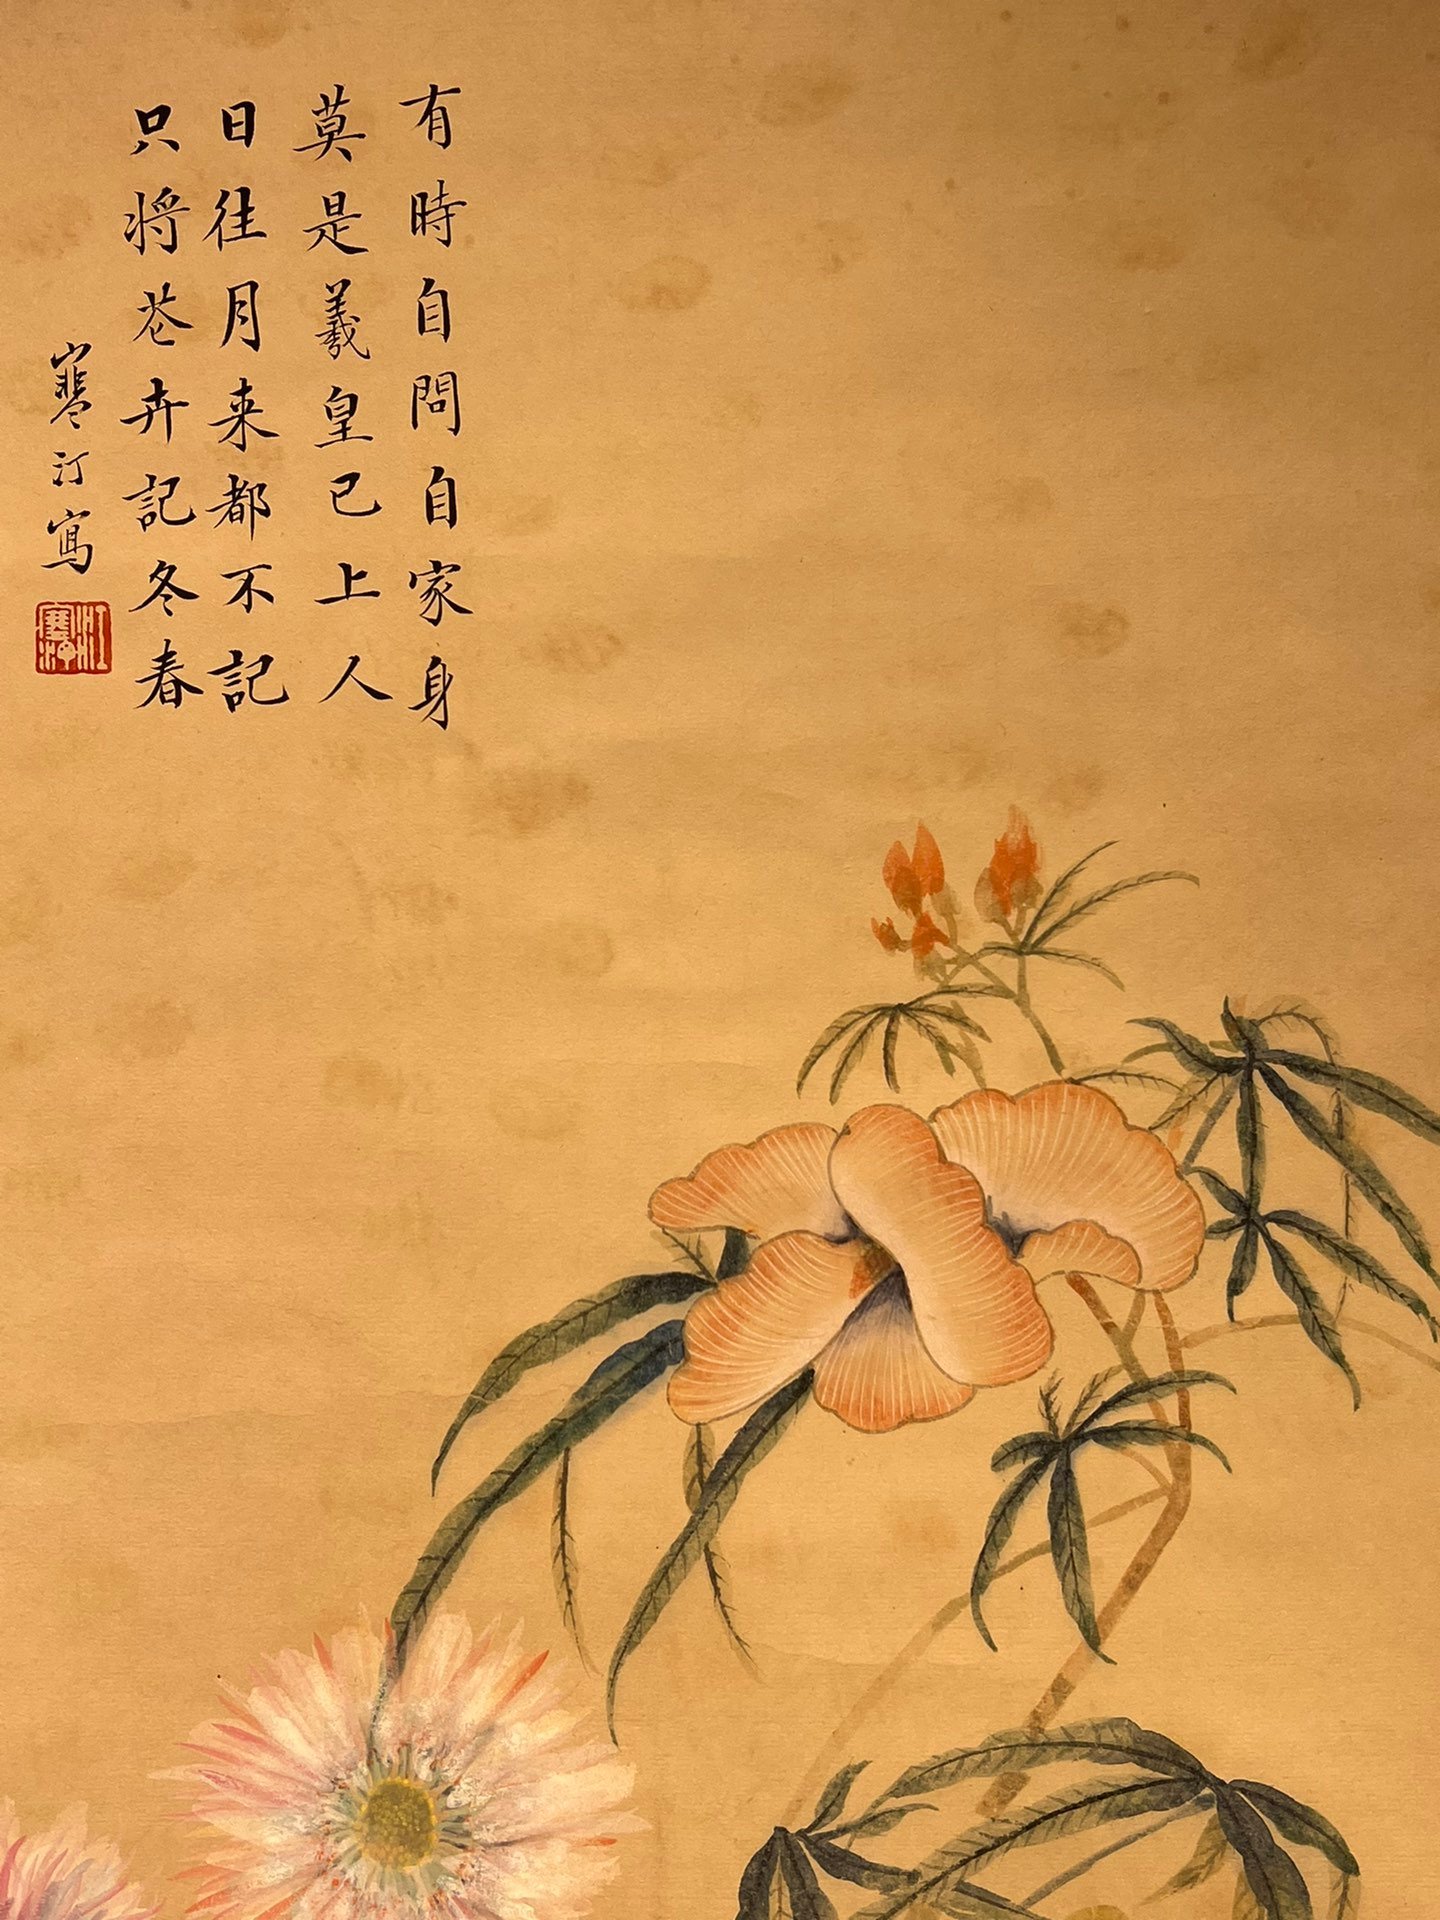 有時自問自家身
莫是羲皇已上人
日往月来都不記
只将苍卉記冬春
寒汀寫